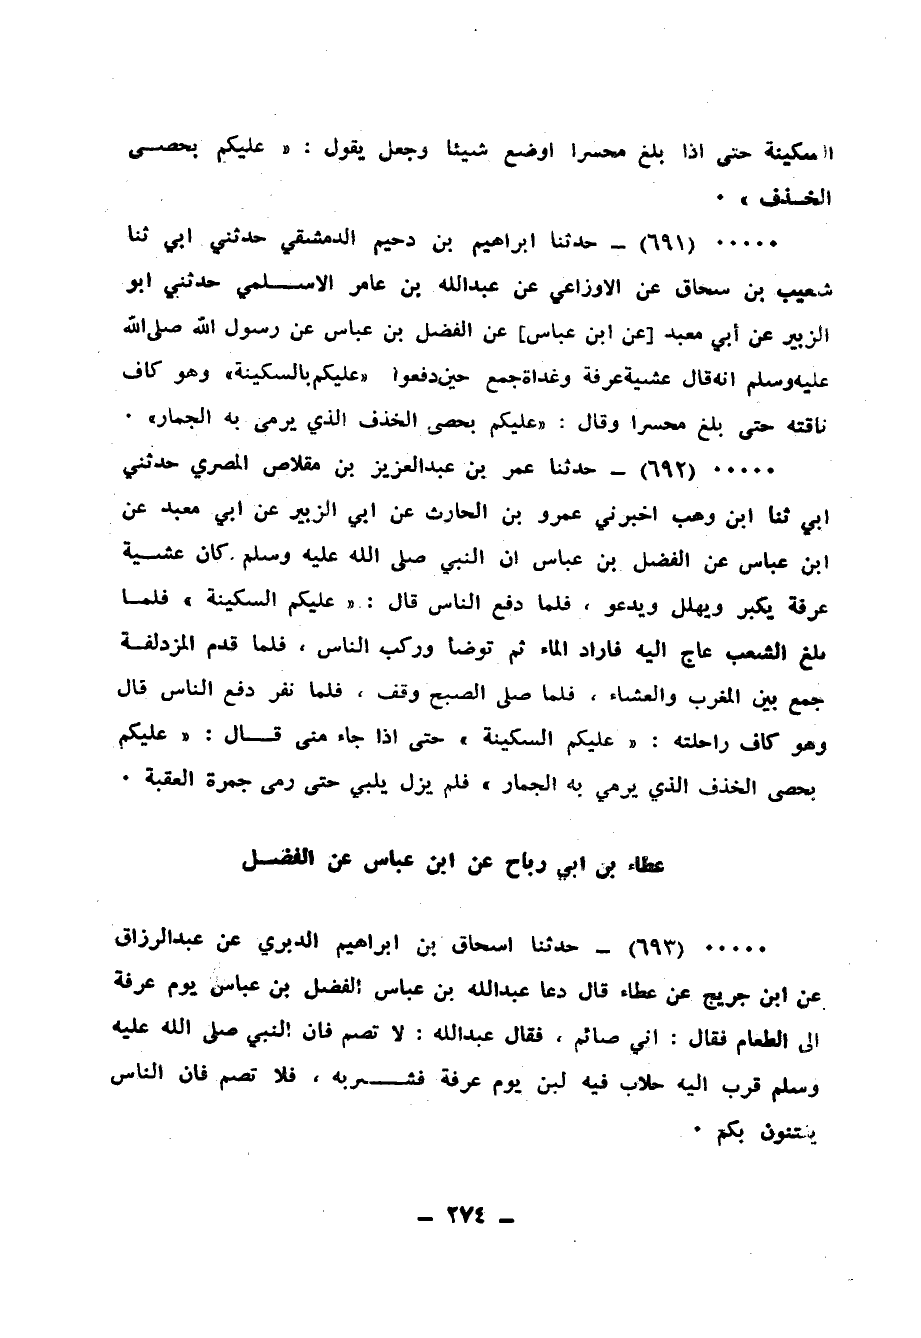 السكينة حتى اذا بلغ محسرا اوضع شيئا وجعل يقول : « عليكم بحصى
الخذف » ٠
٠٠٠٠٠ (٦٩١) ــ حدثنا ابراهيم بن دحيم الدمشقي حدثني ابي ثنا
شعيب بن سحاق عن الاوزاعي عن عبدالله بن عامر الاسلمي حدثني ابو
الزبير عن أبي معبد [عن ابن عباس] عن الفضل بن عباس عن رسول الله صلى الله
عليه وسلم انه قال عشية عرفة وغداة جمع حين دفعوا «عليكم بالسكينة» وهو كاف
ناقته حتى بلغ محسرا وقال : «عليكم بحصى الخذف الذي يرمى به الجمار» ٠
٠٠٠٠٠ (٦٩٢) ــ حدثنا عمر بن عبدالعزيز بن مقلاص المصري حدثني
ابي ثنا ابن وهب اخبرني عمرو بن الحارث عن ابي الزبير عن ابي معبد عن
ابن عباس عن الفضل بن عباس ان النبي صلى الله عليه وسلم كان عشية
عرفة يكبر ويهلل ويدعو ، فلما دفع الناس قال : « عليكم السكينة » فلما
بلغ الشعب عاج اليه فاراد الماء ثم توضأ وركب الناس ، فلما قدم المزدلفة
جمع بين المغرب والعشاء ، فلما صلى الصبح وقف ، فلما نفر دفع الناس قال
وهو كاف راحلته : « عليكم السكينة » حتى اذا جاء منى قال : « عليكم
بحصى الخذف الذي يرمي به الجمار » فلم يزل يلبي حتى رمى جمرة العقبة ٠
عطاء بن ابي رباح عن ابن عباس عن الفضل
٠٠٠٠٠ (٦٩٣) ــ حدثنا اسحاق بن ابراهيم الدبري عن عبدالرزاق
عن ابن جريج عن عطاء قال دعا عبدالله بن عباس الفضل بن عباس يوم عرفة
الى الطعام فقال : اني صائم ، فقال عبدالله : لا تصم فان النبي صلى الله عليه
وسلم قرب اليه حلاب فيه لبن يوم عرفة فشربه ، فلا تصم فان الناس
يستنون بكم ٠
ــ ٢٧٤ ــ